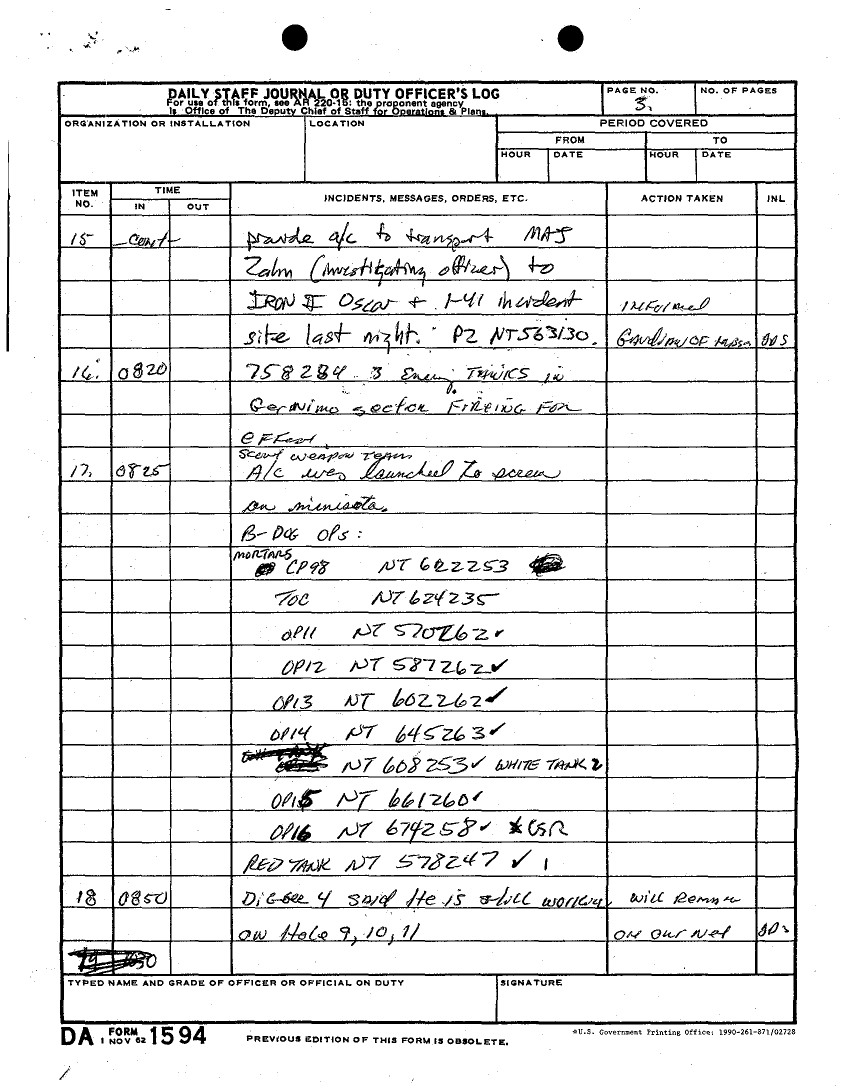 DAILY STAFF JOURNAL OR DUTY OFFICER'S LOG
For use of this form, see AR 220-15: the proponent agency
is Office of The Deputy Chief of Staff for Operations & Plans.
PAGE NO.
3.
NO. OF PAGES
ORGANIZATION OR INSTALLATION
LOCATION
PERIOD COVERED
FROM
TO
HOUR
DATE
HOUR
DATE
ITEM NO.
TIME
IN
OUT
INCIDENTS, MESSAGES, ORDERS, ETC.
ACTION TAKEN
INL
15 -cont- provide a/c to transport MAJ
Zahm (investigating officer) to
IRON II Oscar + 1-41 incident informed
site last night. PZ NT563130. Guardian OF
16. 0820 758284 3 Enemy TANKS in
Geronimo sector FIREING FOR
eFFect.
Scout weapon Team
17. 0825 A/C was launched to screen
on minisota.
B-Dog OPs:
MORTARS
CP98 NT 622253
TOC NT 624235
OP11 NT 570262 ✓
OP12 NT 587262 ✓
OP13 NT 602262 ✓
OP14 NT 645263 ✓
NT 608253 ✓ WHITE TANK 2
OP15 NT 661260 ✓
OP16 NT 674258 ✓ * GSR
RED TANK NT 578247 ✓ 1
18 0850 Digger 4 said He is still working will Remain
on Hole 9, 10, 11 on our net
TYPED NAME AND GRADE OF OFFICER OR OFFICIAL ON DUTY
SIGNATURE
DA FORM 1 NOV 62 1594
PREVIOUS EDITION OF THIS FORM IS OBSOLETE.
*U.S. Government Printing Office: 1990-261-871/02728